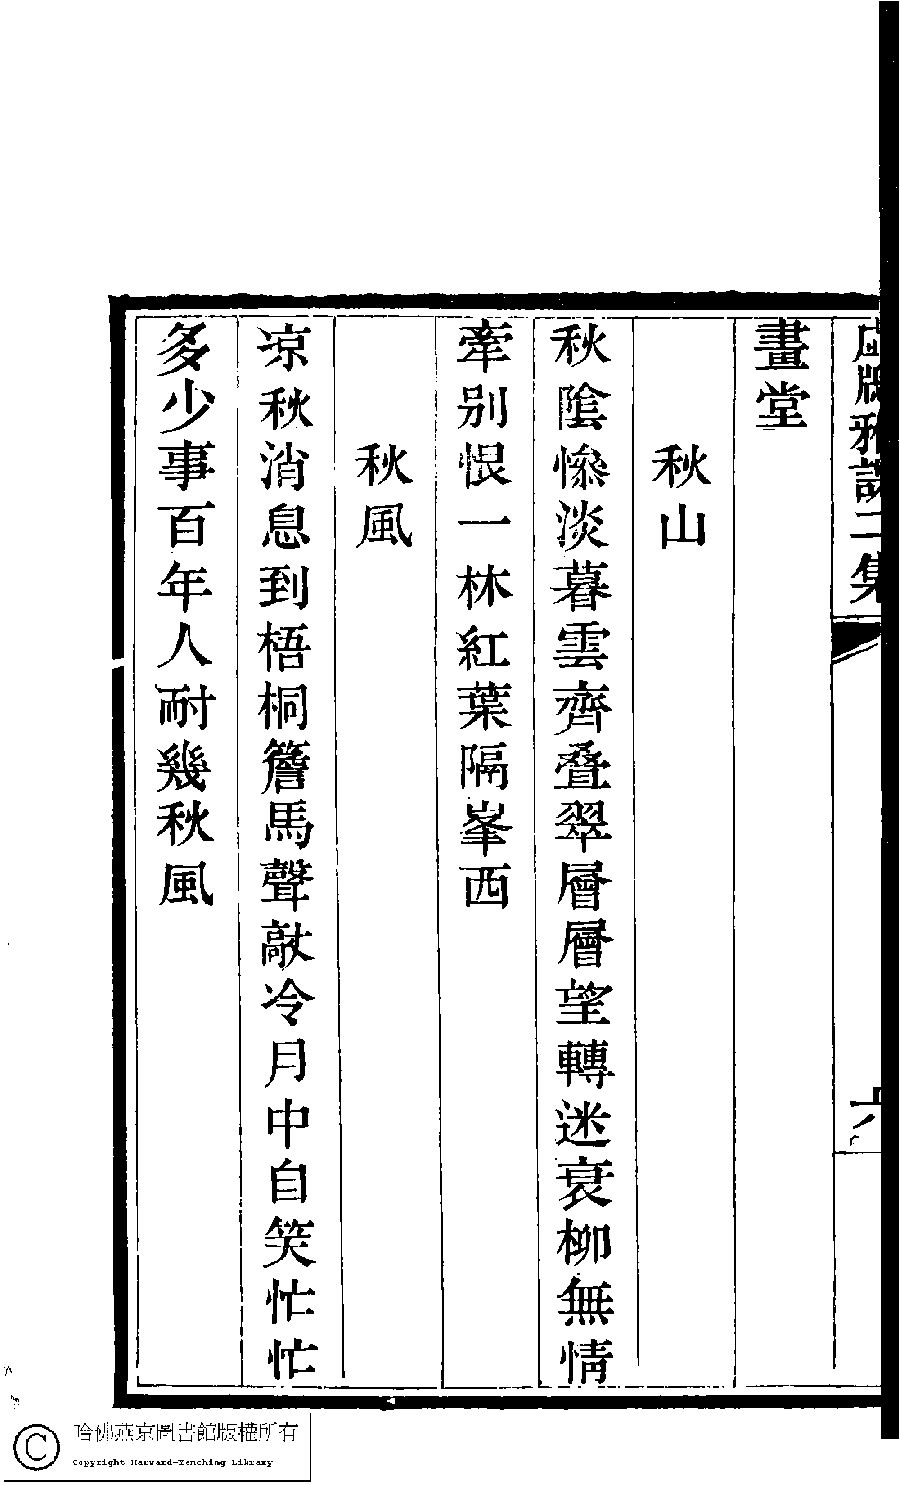 虛牕雅課二集
六
畫堂
秋山
秋陰慘淡暮雲齊叠翠層層望轉迷衰柳無情
牽別恨一林紅葉隔峯西
秋風
凉秋消息到梧桐簷馬聲敲冷月中自笑忙忙
多少事百年人耐幾秋風
哈佛燕京圖書館版權所有
Copyright Harvard-Yenching Library